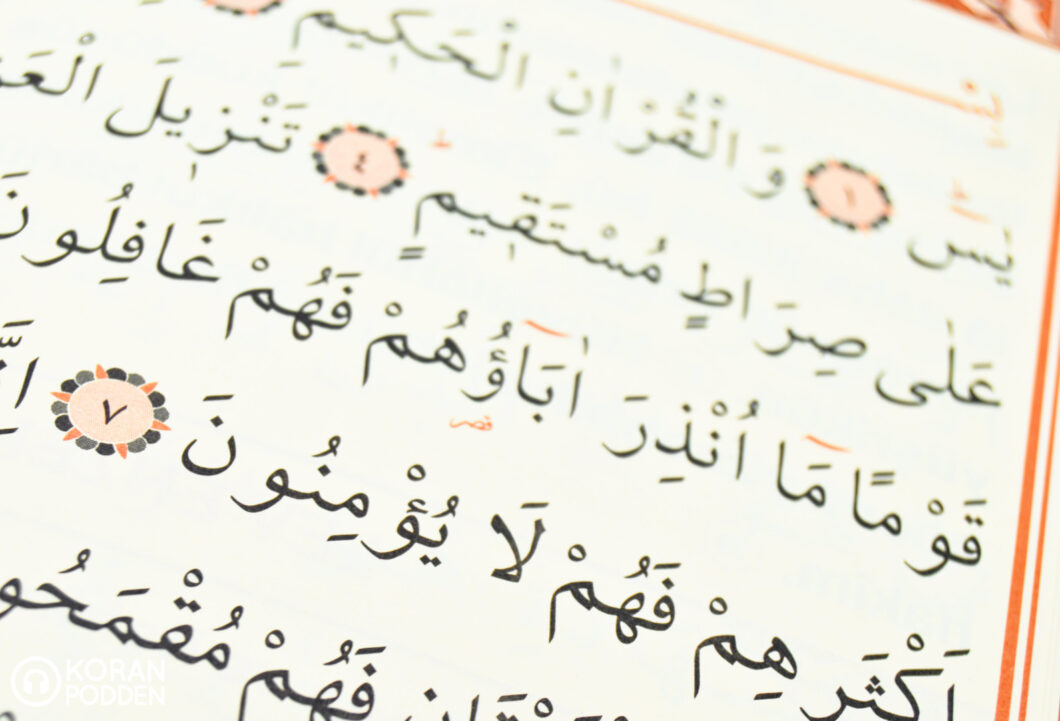 يٰسٓ ١ وَالْقُرْاٰنِ الْحَكٖيمِ
عَلٰى صِرَاطٍ مُسْتَقٖيمٍ ٤ تَنْزٖيلَ
قَوْمًا مَٓا اُنْذِرَ اٰبَٓاؤُ۬هُمْ فَهُمْ غَافِلُونَ
قصر
اَكْثَرِهِمْ فَهُمْ لَا يُؤْمِنُونَ ٧
فَهُمْ
KORAN
PODDEN